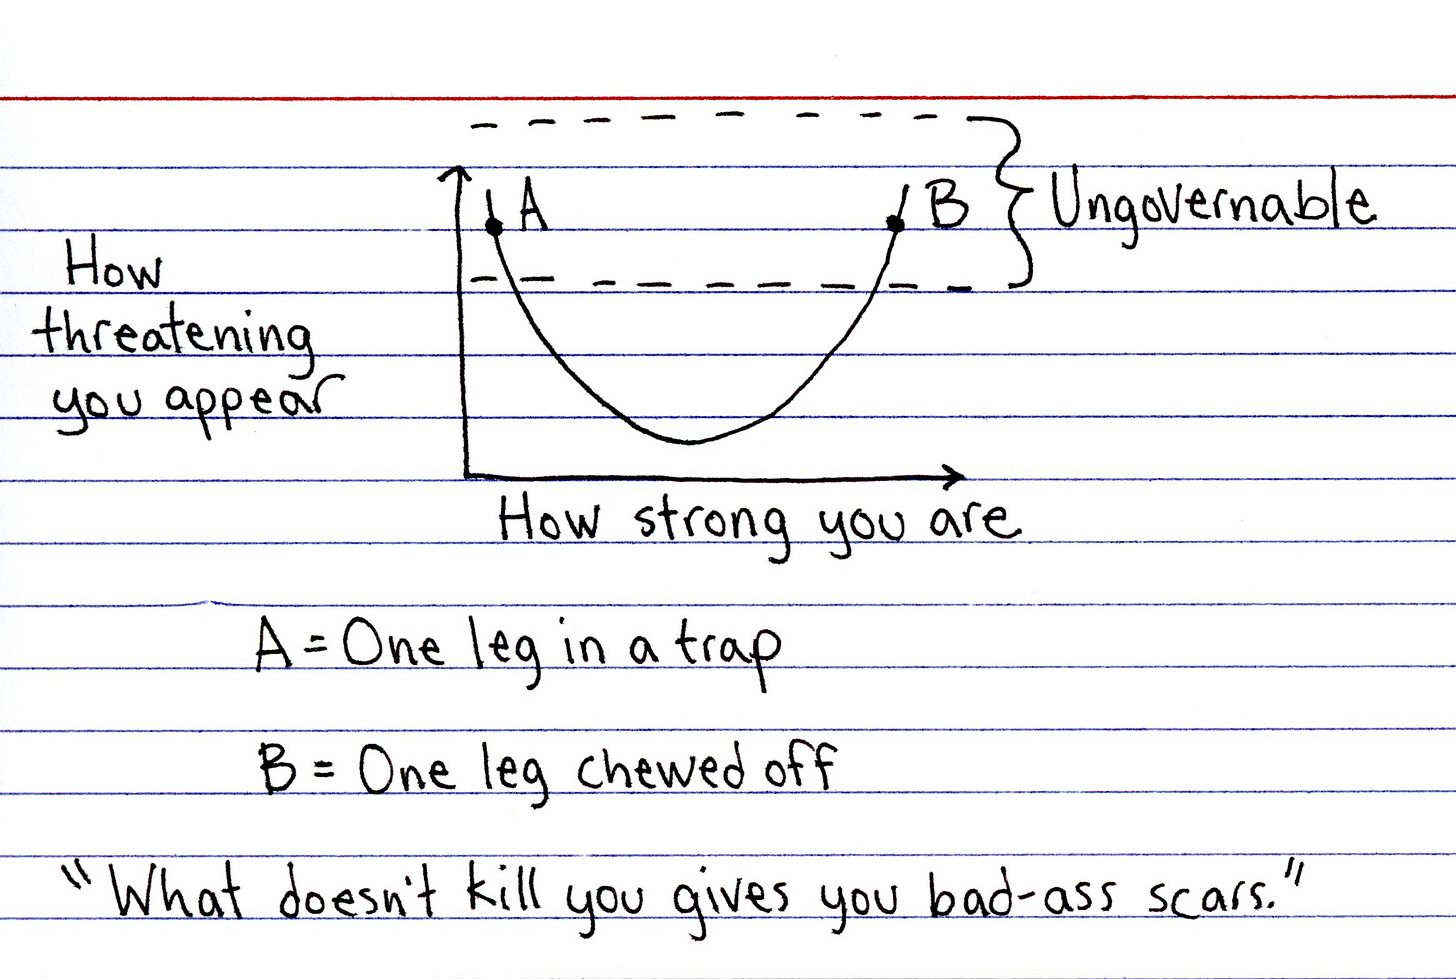 A
B
Ungovernable
How
threatening
you appear
How strong you are
A = One leg in a trap
B = One leg chewed off
"What doesn't kill you gives you bad-ass scars."